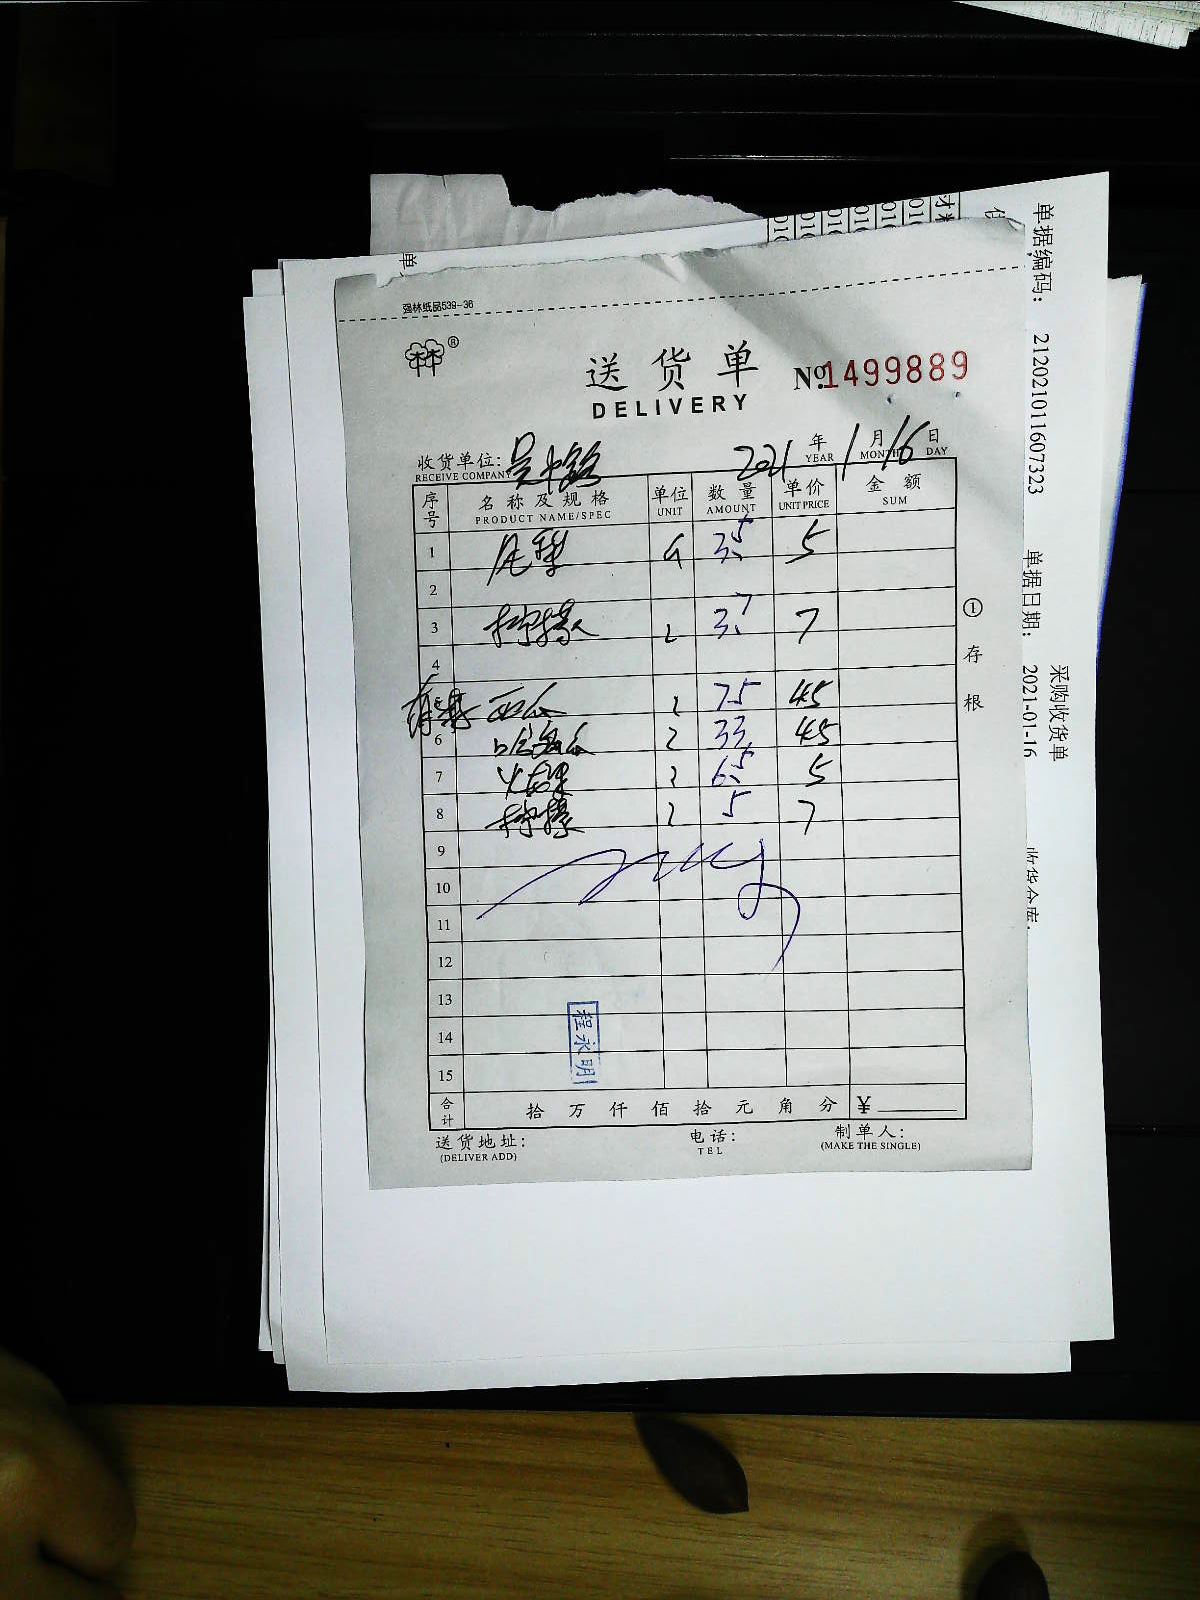 强林纸品539-36
林®
送货单 №1499889
DELIVERY
收货单位: 吴中路 2021年1月16日
RECEIVE COMPANY YEAR MONTH DAY
序号 名称及规格 单位 数量 单价 金额
PRODUCT NAME/SPEC UNIT AMOUNT UNIT PRICE SUM
1 5
2
3 柠檬 3.7 7
4
5 西瓜 75 45
6 哈密瓜 33 45
7 火龙果 6.5 5
8 柠檬 5 7
9
10
11
12
13
14
15
程永明
合计 拾 万 仟 佰 拾 元 角 分 ¥
送货地址: 电话: 制单人:
(DELIVER ADD) TEL (MAKE THE SINGLE)
①存根
采购收货单
单据编码: 212021011607323 单据日期: 2021-01-16
单